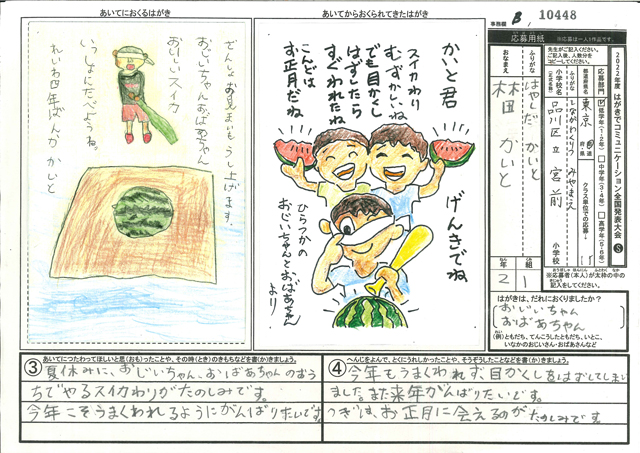 あいてにおくるはがき
しょ中お見まいもうし上げます。
おじいちゃん、おばあちゃん
おいしいスイカ
いっしょにたべようね。
れいわ四年なつ かいと
あいてからおくられてきたはがき
かいと君
スイカわり
むずかしいね
でも目かくし
はずしたら
すぐわれたね
こんどは
お正月だね
げんきでね
ひらつかの
おじいちゃんとおばあちゃん
より
事務欄 B 10448
応募用紙
※応募は一人1作品です。
先生がご記入ください。
ご記入後、人数分を
コピーしてください。
2022年度 はがきでコミュニケーション全国発表大会 S
応募部門
低学年(1・2年)
中学年(3・4年)
高学年(5・6年)
都道府県名
東京
都 道
府・県
クラス単位での応募
ふりがな
しながわくりつ みやまえ
小学校名
(正式名称)
品川区立 宮前
小学校
ふりがな
はやしだ かいと
おなまえ
林田 かいと
年 2
組 1
※応募者(本人)が太枠の中の
記入をしてください。
はがきは、だれにおくりましたか?
おじいちゃん
おばあちゃん
(例)ともだち、てんこうしたともだち、いとこ、
いなかのおじいさん・おばあさんなど
③ あいてにつたわってほしいと思(おも)ったことや、その時(とき)のきもちなどを書(か)きましょう。
夏休みに、おじいちゃん、おばあちゃんのおう
ちでやるスイカわりがたのしみです。
今年こそうまくわれるようにがんばりたいです。
④ へんじをよんで、とくにうれしかったことや、そうぞうしたことなどを書(か)きましょう。
今年もうまくわれず目かくしをはずしてしまい
ました。また来年がんばりたいです。
つぎは、お正月に会えるのがたのしみです。